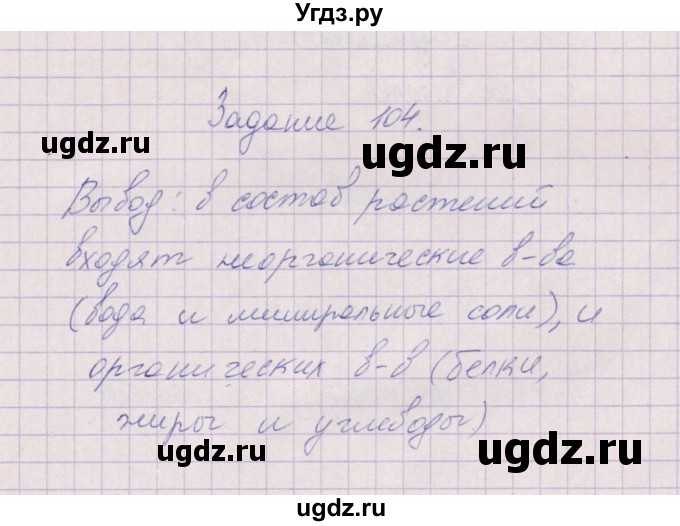 Угдз.ру
Задание 104.
ugdz.ru
ugdz.ru
Вывод: в состав растений
входят неорганические в-ва
(вода и миниральные соли), и
органических в-в (белки,
жиры и углеводы)
ugdz.ru
ugdz.ru
ugdz.ru